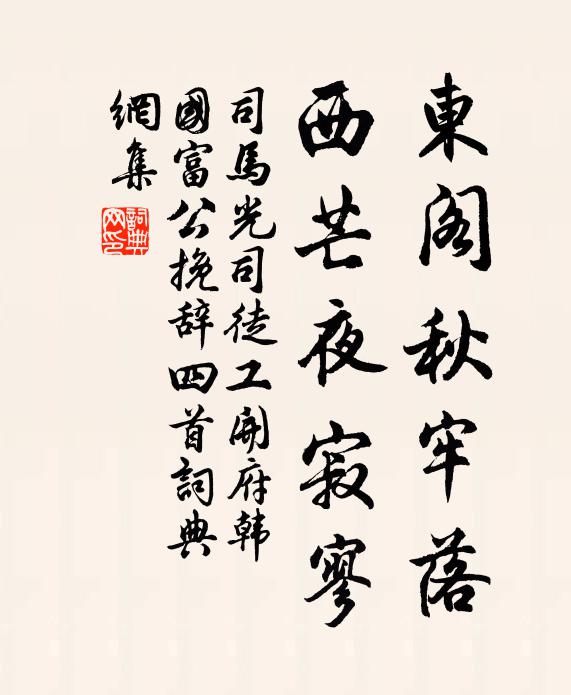 東阁秋牢落
西芒夜寂寥
司馬光司徒工開府韩
國富公挽辞四首詞典
網集
詞典
网印